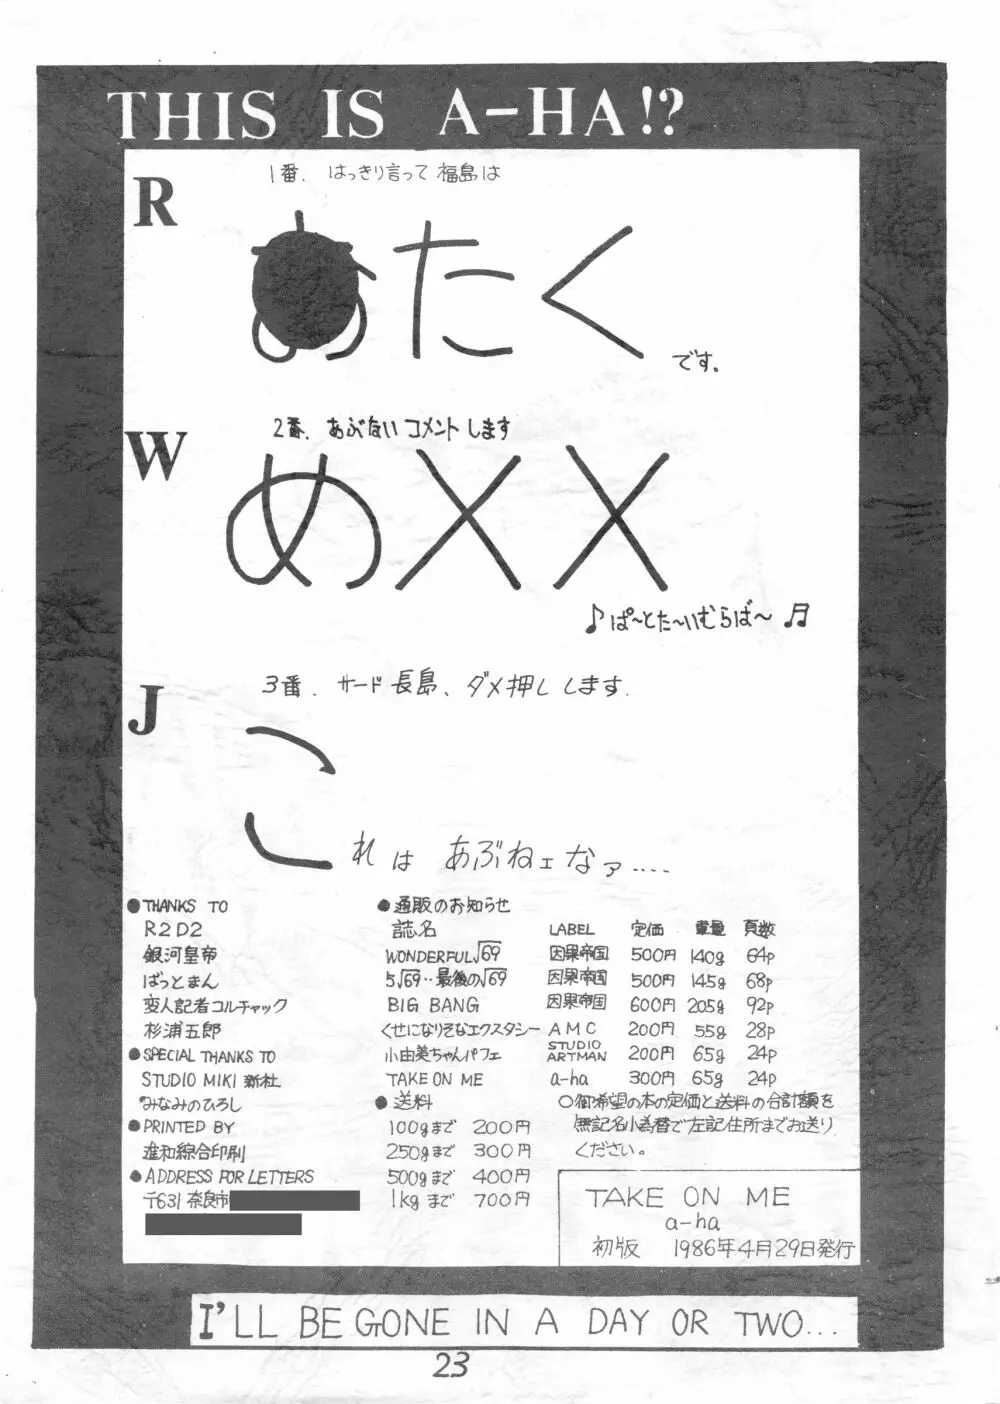 THIS IS A-HA!?
R
1番. はっきり言って 福島は
おたく
です。
W
2番. あぶない コメント します
めXX
♪ ぱ〜とた〜いむらば〜 ♬
J
3番. サード長島、ダメ押し します.
こ
れは あぶねェなァ‥‥
●THANKS TO
R2D2
銀河皇帝
ばっとまん
変人記者コルチャック
杉浦五郎
●SPECIAL THANKS TO
STUDIO MIKI 新社
みなみのひろし
●PRINTED BY
進和綜合印刷
●ADDRESS FOR LETTERS
〒631 奈良市
●通販のお知らせ
誌名 LABEL 定価 重量 頁数
WONDERFUL√69 因果帝国 500円 140g 64p
5√69‥最後の√69 因果帝国 500円 145g 68p
BIG BANG 因果帝国 600円 205g 92p
くせになりそなエクスタシー AMC 200円 55g 28p
小由美ちゃんパフェ STUDIO ARTMAN 200円 65g 24p
TAKE ON ME a-ha 300円 65g 24p
●送料
100gまで 200円
250gまで 300円
500gまで 400円
1kgまで 700円
○御希望の本の定価と送料の合計額を
無記名小為替で左記住所までお送り
ください。
TAKE ON ME
a-ha
初版 1986年4月29日発行
I'LL BE GONE IN A DAY OR TWO...
23